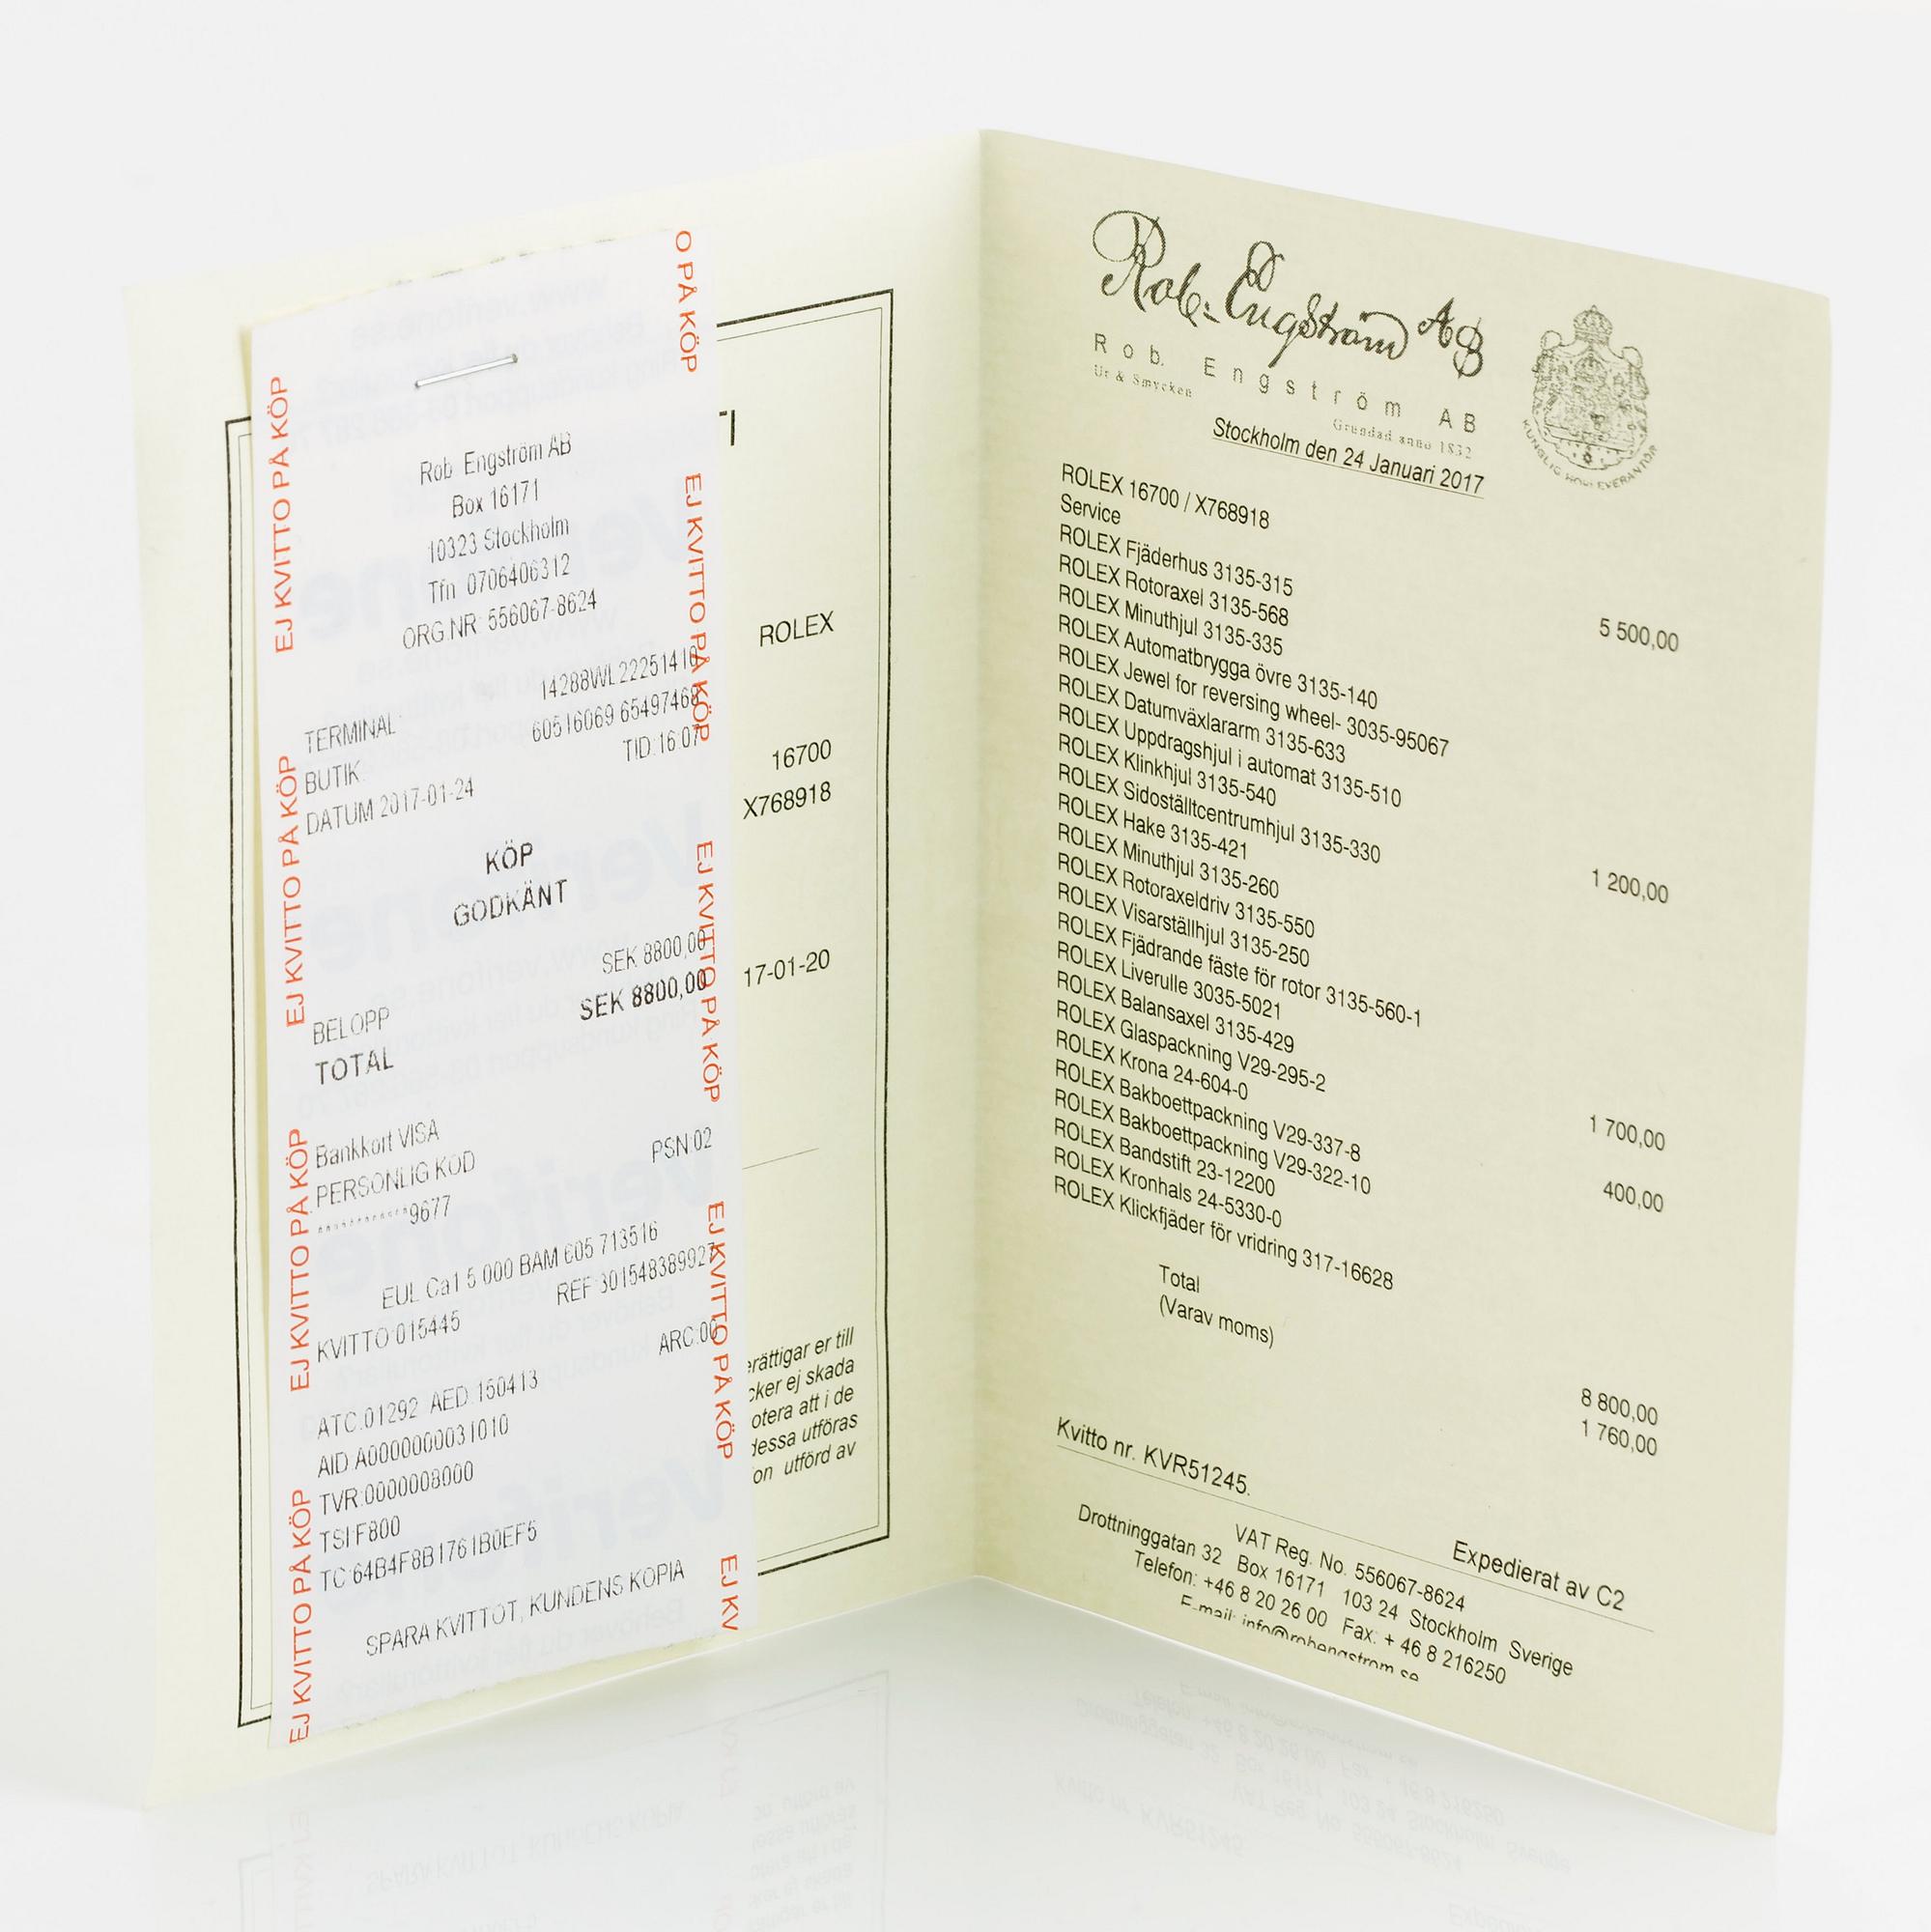 O PÅ KÖP
EJ KVITTO PÅ KÖP
EJ KVITTO PÅ KÖP
EJ KVITTO PÅ KÖP
EJ KVITTO PÅ KÖP
EJ KVITTO PÅ KÖP
EJ KVITTO PÅ KÖP
EJ KVITTO PÅ KÖP
EJ KV
Rob Engström AB
Box 16171
10323 Stockholm
Tfn 0706406312
ORG.NR: 556067-8624
TERMINAL 14288WL22251410
BUTIK: 60516069 65497468
DATUM 2017-01-24 TID:16:07
KÖP
GODKÄNT
BELOPP SEK 8800,00
TOTAL SEK 8800,00
Bankkort VISA
PERSONLIG KOD PSN:02
************9677
EUL Ca1 5 000 BAM 605 713516
KVITTO:015445 REF:301548389927
ARC:00
ATC:01292 AED:150413
AID:A0000000031010
TVR:0000008000
TSI:F800
TC:64B4F8B1761B0EF5
SPARA KVITTOT, KUNDENS KOPIA
ROLEX
16700
X768918
17-01-20
erättigar er till
cker ej skada
otera att i de
dessa utföras
on utförd av
Rob. Engström AB
Rob. Engström AB
Ur & Smycken
Grundad anno 1832
KUNGLIG HOVLEVERANTÖR
Stockholm den 24 Januari 2017
ROLEX 16700 / X768918
Service 5 500,00
ROLEX Fjäderhus 3135-315
ROLEX Rotoraxel 3135-568
ROLEX Minuthjul 3135-335
ROLEX Automatbrygga övre 3135-140
ROLEX Jewel for reversing wheel- 3035-95067
ROLEX Datumväxlararm 3135-633
ROLEX Uppdragshjul i automat 3135-510
ROLEX Klinkhjul 3135-540 1 200,00
ROLEX Sidoställtcentrumhjul 3135-330
ROLEX Hake 3135-421
ROLEX Minuthjul 3135-260
ROLEX Rotoraxeldriv 3135-550
ROLEX Visarställhjul 3135-250
ROLEX Fjädrande fäste för rotor 3135-560-1
ROLEX Liverulle 3035-5021
ROLEX Balansaxel 3135-429
ROLEX Glaspackning V29-295-2
ROLEX Krona 24-604-0 1 700,00
ROLEX Bakboettpackning V29-337-8
ROLEX Bakboettpackning V29-322-10
ROLEX Bandstift 23-12200 400,00
ROLEX Kronhals 24-5330-0
ROLEX Klickfjäder för vridring 317-16628
Total 8 800,00
(Varav moms) 1 760,00
Kvitto nr. KVR51245.
Expedierat av C2
VAT Reg. No. 556067-8624
Drottninggatan 32 Box 16171 103 24 Stockholm Sverige
Telefon: +46 8 20 26 00 Fax: + 46 8 216250
E-mail: info@robengstrom.se